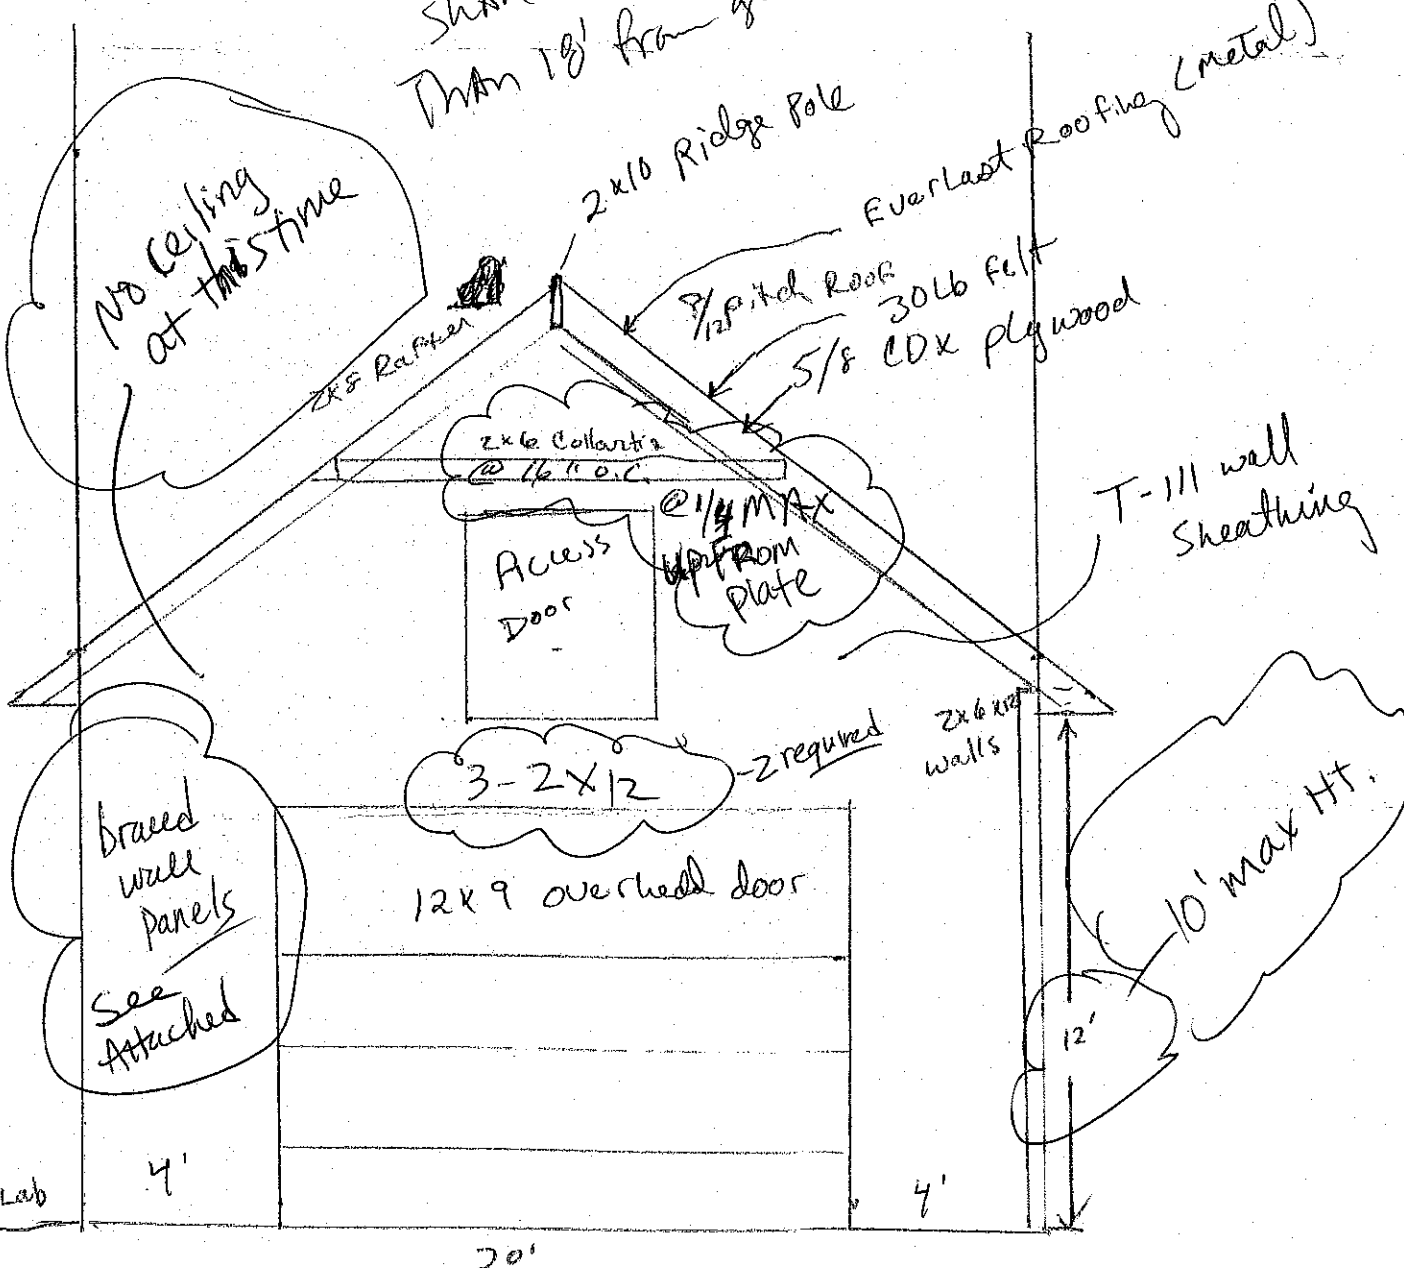 Than 18' from
2x10 Ridge Pole
EverLast Roofing (metal)
No Ceiling
at this time
8/12 pitch Roof
30Lb felt
5/8 CDX plywood
2x8 Rafter
2x6 Collartie
@ 16" o.c.
@ 1/4 MAX
UP FROM
plate
Access
Door
T-111 wall
Sheathing
3-2x12
-2 required
2x6x12'
walls
braced
wall
panels
See
Attached
12x9 overhead door
10' max Ht.
12'
4'
4'
20'